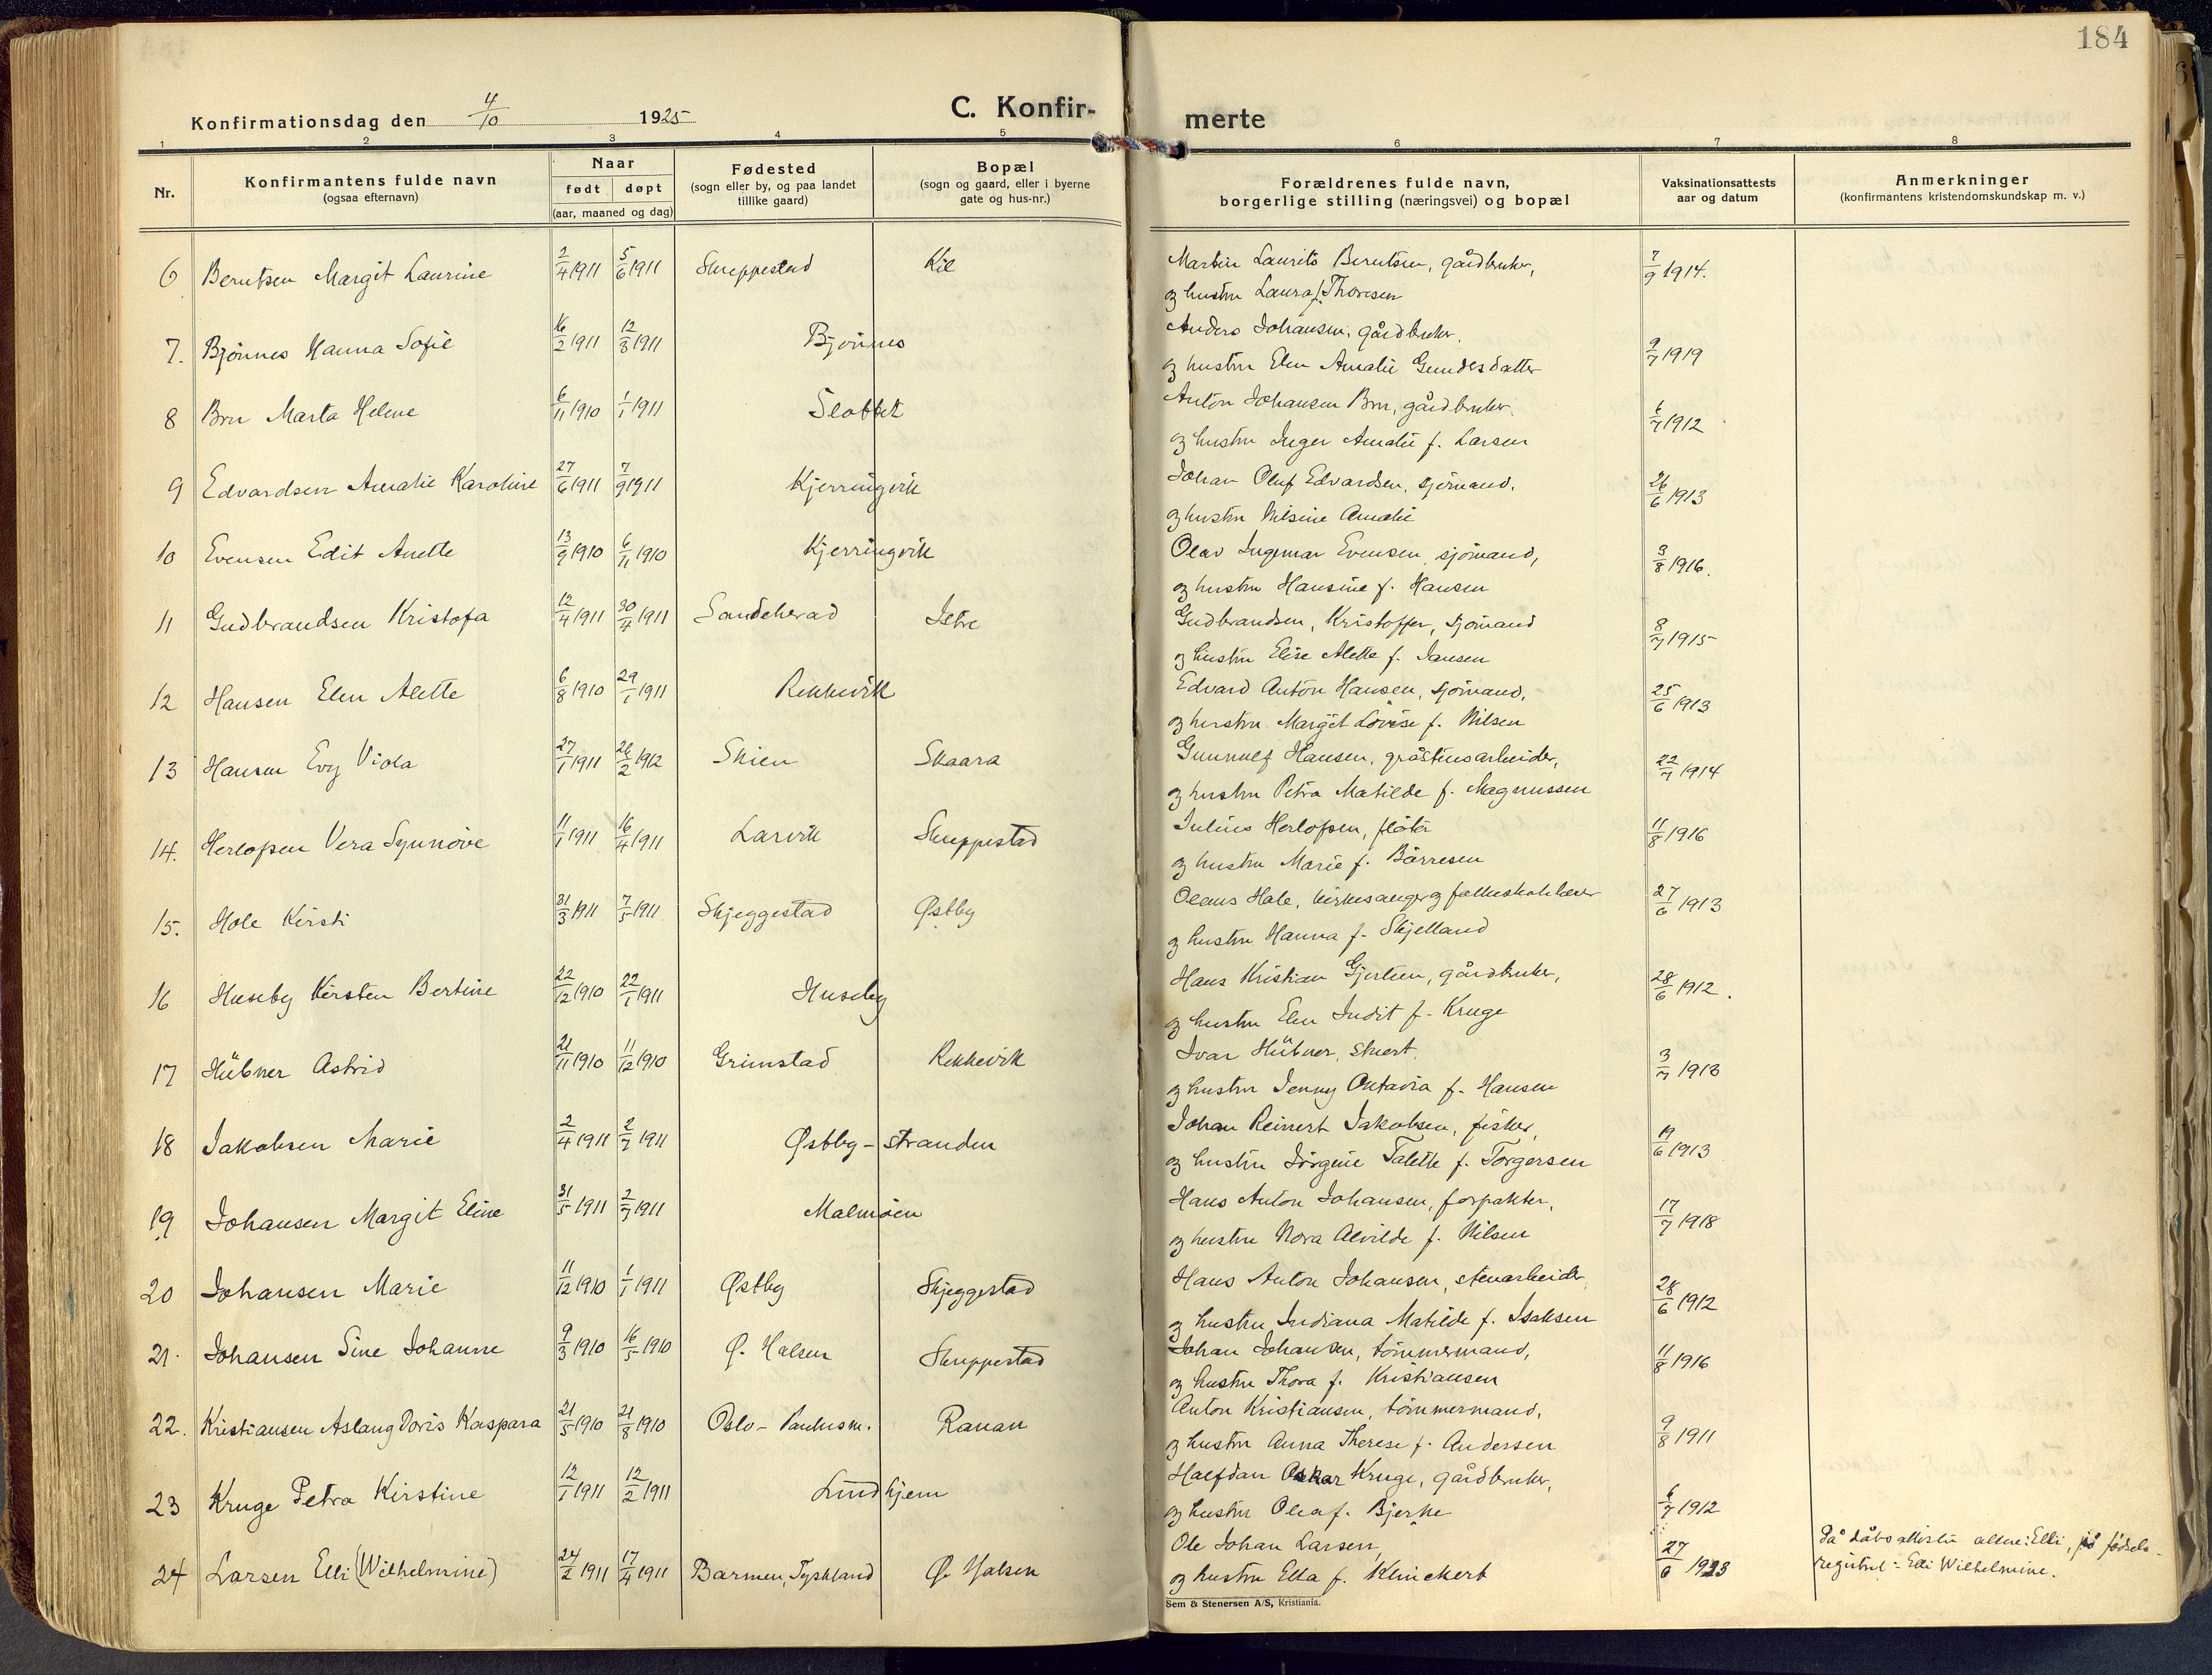 184
Konfirmationsdag den 4/10 1925
C. Konfir-
merte
1 2 3 4 5 6 7 8
Nr.
Konfirmantens fulde navn
(ogsaa efternavn)
Naar
født døpt
(aar, maaned og dag)
Fødested
(sogn eller by, og paa landet
tillike gaard)
Bopæl
(sogn og gaard, eller i byerne
gate og hus-nr.)
Forældrenes fulde navn,
borgerlige stilling (næringsvei) og bopæl
Vaksinationsattests
aar og datum
Anmerkninger
(konfirmantens kristendomskundskap m. v.)
6 Berntsen Margit Laurine 2/4 1911 5/6 1911 Skreppestad Kil Martin Laurits Berntsen, gårdbruker, 7/9 1914.
og hustru Laura f. Thoresen
7. Bjønnes Hanna Sofie 16/2 1911 12/3 1911 Bjønnes Anders Johansen, gårdbruker. 9/7 1919
og hustru Elen Amalie Gundesdatter
8 Bru Marta Helene 6/11 1910 1/1 1911 Slottet Anton Johansen Bru, gårdbruker. 6/7 1912
og hustru Inger Amalie f. Larsen
9 Edvardsen Amalie Karoline 27/6 1911 7/9 1911 Kjerringvik Johan Oluf Edvardsen, sjømand, 26/6 1913
og hustru Nilsine Amalie
10 Evensen Edit Anette 13/9 1910 6/11 1910 Kjerringvik Olav Ingemar Evensen, sjømand, 3/8 1916.
og hustru Hansine f. Hansen
11 Gudbrandsen Kristofa 12/4 1911 30/4 1911 Sandeherad Istre Gudbrandsen, Kristoffer, sjømand 8/7 1915
og hustru Elise Alette f. Jansen
12 Hansen Elen Alette 6/8 1910 29/1 1911 Rekkevik Edvard Anton Hansen, sjømand, 25/6 1913
og hustru Margit Lovise f. Nilsen
13 Hansen Evy Viola 27/1 1911 26/2 1912 Skien Skaara Gunnulf Hansen, gråstensarbeider, 22/7 1914
og hustru Petra Matilde f. Magnussen
14. Herlofsen Vera Synnøve 11/1 1911 16/4 1911 Larvik Skreppestad Julius Herlofsen, fløter 11/8 1916
og hustru Marie f. Børresen
15. Hole Kirsti 31/3 1911 7/5 1911 Skjeggestad Østby Olaus Hole, kirkesanger og folkeskolelærer 27/6 1913
og hustru Hanna f. Skjelland
16 Huseby Kirsten Bertine 22/12 1910 22/1 1911 Huseby Hans Kristian Gjertsen, gårdbruker, 28/6 1912.
og hustru Elen Indit f. Kruge
17 Hübner Astrid 21/11 1910 11/12 1910 Grimstad Rekkevik Ivar Hübner, stuert. 3/7 1913
og hustru Jenny Oktavia f. Hansen
18 Jakobsen Marie 2/4 1911 2/7 1911 Østby-stranden Johan Reinert Jakobsen, fisker, 19/6 1913
og hustru Jørgine Talette f. Torgersen
19 Johansen Margit Eline 31/5 1911 2/7 1911 Malmøien Hans Anton Johansen, forpakter, 17/7 1918
og hustru Nora Alvilde f. Nilsen
20 Johansen Marie 11/12 1910 1/1 1911 Østby Skjeggestad Hans Anton Johansen, stenarbeider 28/6 1912
og hustru Indiana Matilde f. Isaksen
21. Johansen Sine Johanne 9/3 1910 16/5 1910 Ø. Halsen Skreppestad Johan Johansen, tømmermand, 11/8 1916
og hustru Thora f. Kristiansen
22. Kristiansen Aslaug Doris Kaspara 21/5 1910 21/8 1910 Oslo - Paulusm. Ranan Anton Kristiansen, tømmermand, 9/8 1911
og hustru Anna Therese f. Andersen
23 Kruge Petra Kirstine 12/1 1911 12/2 1911 Lindhjem Halfdan Oskar Kruge, gårdbruker, 6/7 1912
og hustru Olea f. Bjerke
24 Larsen Elli (Wilhelmine) 24/2 1911 17/4 1911 Barmen, Tyskland Ø. Halsen Ole Johan Larsen, 27/6 1923 På dåbsattesten allene: Elli, på fødsels-
og hustru Ella f. Klinckert registret: Elli Wilhelmine.
Sem & Stenersen A/S, Kristiania.